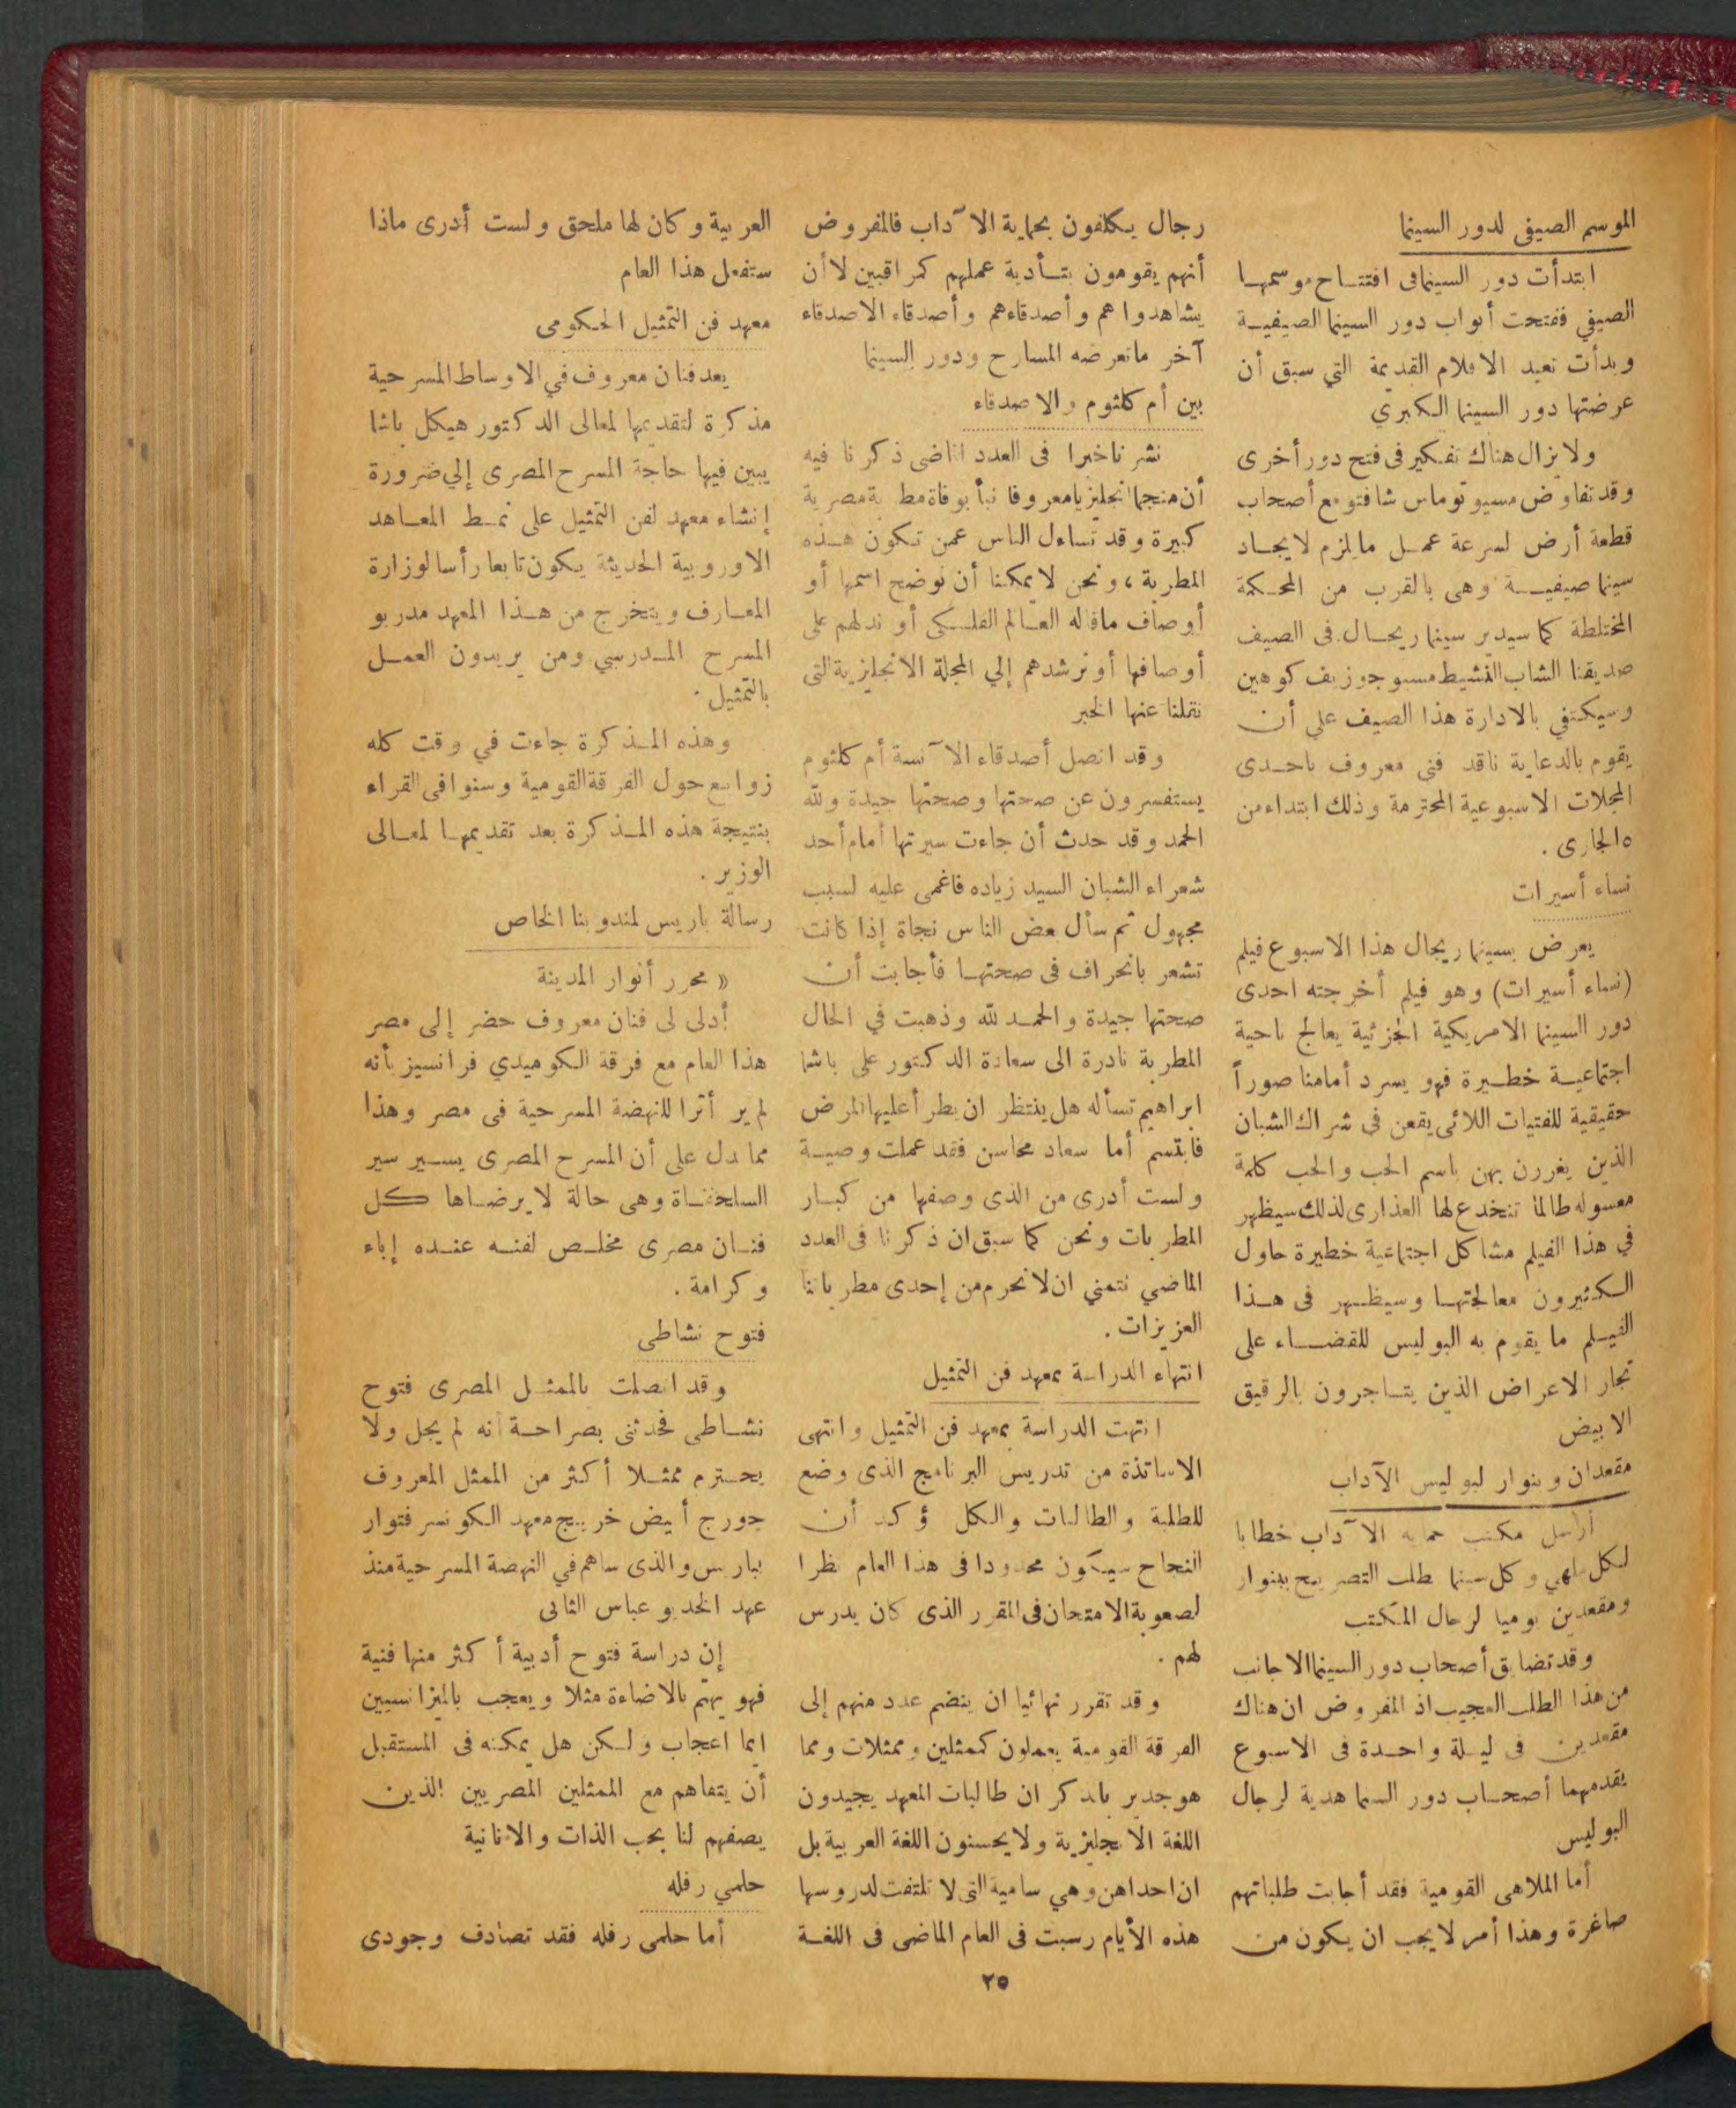 الموسم الصيفى لدور السينما
ابتدأت دور السينمافى افتتاح موسمها
الصيفي ففتحت أبواب دور السينما الصيفية
وبدأت تعيد الافلام القديمة التي سبق أن
عرضتها دور السينما الكبرى
ولا يزال هناك تفكير فى فتح دور أخرى
وقد تفاوض مسيو توماس شافتو مع أصحاب
قطعة أرض لسرعة عمل مايلزم لايجاد
سينما صيفية وهى بالقرب من المحكمة
المختلطة كما سيدير سينما ريجال فى الصيف
صديقنا الشاب النشيط مسيو جوزيف كوهين
وسيكتفي بالادارة هذا الصيف علي أن
يقوم بالدعاية ناقد فنى معروف باحدى
المجلات الاسبوعية المحترمة وذلك ابتداء من
٥ الجارى .
نساء أسيرات
يعرض بسينما ريجال هذا الاسبوع فيلم
(نساء أسيرات) وهو فيلم أخرجته احدى
دور السينما الامريكية الجزئية يعالج ناحية
اجتماعية خطيرة فهو يسرد أمامنا صوراً
حقيقية للفتيات اللائى يقعن فى شراك الشبان
الذين يغررن بهن باسم الحب والحب كلمة
معسوله طالما تنخدع لها العذارى لذلك سيظهر
في هذا الفيلم مشاكل اجتماعية خطيرة حاول
الكثيرون معالجتها وسيظهر فى هذا
الفيلم ما يقوم به البوليس للقضاء على
تجار الاعراض الذين يتاجرون بالرقيق
الابيض
مقعدان وبنوار لبوليس الآداب
أرسل مكتب حماية الآداب خطابا
لكل ملهي وكل سينما يطلب التصريح ببنوار
ومقعدين يوميا لرجال المكتب
وقد تضايق أصحاب دور السينما الاجانب
من هذا الطلب العجيب اذ المفروض ان هناك
مقعدين فى ليلة واحدة فى الاسبوع
يقدمهما أصحاب دور السنما هدية لرجال
البوليس
أما الملاهى القومية فقد أجابت طلباتهم
صاغرة وهذا أمر لا يجب ان يكون من
رجال يكلفون بحماية الآداب فالمفروض
أنهم يقومون بتأدية عملهم كمراقبين لا أن
يشاهدوا هم وأصدقاءهم وأصدقاء الاصدقاء
آخر ماتعرضه المسارح ودور السينما
بين أم كلثوم والاصدقاء
نشرنا خبرا فى العدد الماضى ذكرنا فيه
أن منجما انجليزيا معروفا تنبأ بوفاة مطربة مصرية
كبيرة وقد تساءل الناس عمن تكون هذه
المطربة ، ونحن لا يمكننا أن نوضح اسمها أو
أوصاف ماقاله العالم الفلكى أو ندلهم على
أوصافها أو نرشدهم إلي المجلة الانجليزية التى
نقلنا عنها الخبر
وقد اتصل أصدقاء الآنسة أم كلثوم
يستفسرون عن صحتها وصحتها جيدة ولله
الحمد وقد حدث أن جاءت سيرتها أمام أحد
شعراء الشبان السيد زياده فاغمى عليه لسبب
مجهول ثم سأل بعض الناس نجاة إذا كانت
تشعر بانحراف فى صحتها فأجابت أن
صحتها جيدة والحمد لله وذهبت في الحال
المطربة نادرة الى سعادة الدكتور على باشا
ابراهيم تسأله هل ينتظر ان يطرأ عليها المرض
فابتسم أما سعاد محاسن فقد عملت وصية
ولست أدرى من الذى وصفها من كبار
المطربات ونحن كما سبق ان ذكرنا فى العدد
الماضي نتمني ان لا نحرم من إحدى مطرباتنا
العزيزات .
انتهاء الدراسة بمعهد فن التمثيل
انتهت الدراسة بمعهد فن التمثيل وانتهى
الاساتذة من تدريس البرنامج الذى وضع
للطلبة والطالبات والكل يؤكد أن
النجاح سيكون محدودا فى هذا العام نظرا
لصعوبة الامتحان فى المقرر الذى كان يدرس
لهم .
وقد تقرر نهائيا ان ينضم عدد منهم إلى
الفرقة القومية يعملون كممثلين وممثلات ومما
هو جدير بالذكر ان طالبات المعهد يجيدون
اللغة الانجليزية ولا يحسنون اللغة العربية بل
ان احداهن وهي سامية التى لا تلتفت لدروسها
هذه الأيام رسبت فى العام الماضى فى اللغة
العربية وكان لها ملحق ولست أدرى ماذا
ستفعل هذا العام
معهد فن التمثيل الحكومى
يعد فنان معروف في الاوساط المسرحية
مذكرة لتقديمها لمعالى الدكتور هيكل باشا
يبين فيها حاجة المسرح المصرى إلي ضرورة
إنشاء معهد لفن التمثيل على نمط المعاهد
الاوروبية الحديثة يكون تابعا رأسا لوزارة
المعارف ويتخرج من هذا المعهد مدربو
المسرح المدرسي ومن يريدون العمل
بالتمثيل .
وهذه المذكرة جاءت في وقت كله
زوابع حول الفرقة القومية وسنوافى القراء
بنتيجة هذه المذكرة بعد تقديمها لمعالى
الوزير .
رسالة باريس لمندوبنا الخاص
« محرر أنوار المدينة
أدلى لى فنان معروف حضر إلى مصر
هذا العام مع فرقة الكوميدي فرانسيز بأنه
لم ير أثرا للنهضة المسرحية فى مصر وهذا
مما دل على أن المسرح المصرى يسير سير
السلحفاة وهى حالة لا يرضاها كل
فنان مصرى مخلص لفنه عنده إباء
وكرامة .
فتوح نشاطى
وقد اتصلت بالممثل المصرى فتوح
نشاطى فحدثنى بصراحة أنه لم يجل ولا
يحترم ممثلا أكثر من الممثل المعروف
جورج أبيض خريج معهد الكونسرفتوار
بباريس والذى ساهم في النهضة المسرحية منذ
عهد الخديو عباس الثانى
إن دراسة فتوح أدبية أكثر منها فنية
فهو يهتم بالاضاءة مثلا ويعجب بالميزانسيين
ايما اعجاب ولكن هل يمكنه فى المستقبل
أن يتفاهم مع الممثلين المصريين الذين
يصفهم لنا بحب الذات والانانية
حلمي رفله
أما حلمى رفله فقد تصادف وجودى
٢٥